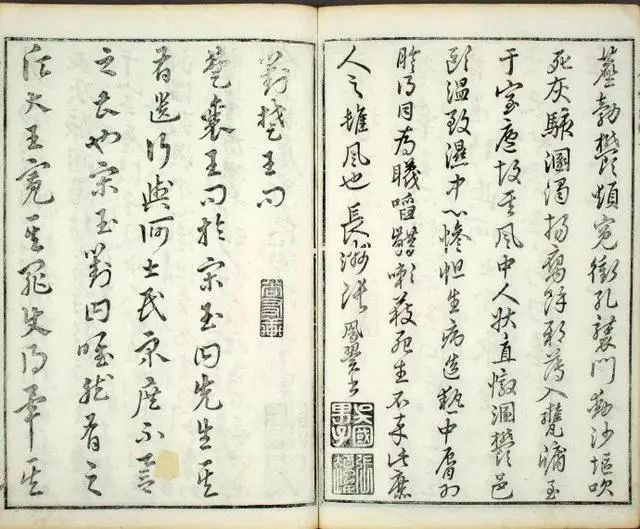 塵勃鬱煩冤衝孔襲門動沙堁吹
死灰駭溷濁揚腐餘邪薄入甕牖至
于室廬故其風中人狀直憞溷鬱邑
毆溫致濕中心慘怛生病造熱中脣為
胗得目為䁾啗齰嗽獲死生不卒此庶
人之雌風也 長洲張鳳翼書
吳國男子
對楚王問
楚襄王問於宋玉曰先生其
有遺行與何士民眾庶不譽
之甚也宋玉對曰唯然有之
願大王寬其罪使得畢其